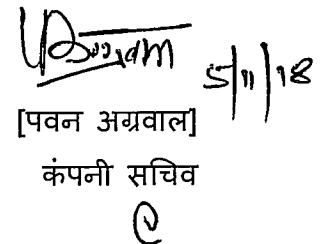 5/11/18
[पवन अग्रवाल]
कंपनी सचिव